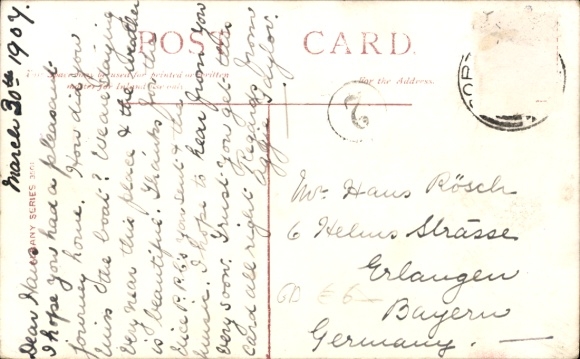 POST CARD.
This Space may be used for printed or written
matter for Inland
For the Address.
March 30th 1907.
Dear Hans
I hope you had a pleasant
journey home. How did you
miss the boat? We are staying
very near this place & the weather
is beautiful. Thanks for the
nice P.P.C's you sent & the
music. I hope to hear from you
very soon. Trust you get this
card all right. Regards from
Taylor.
Mr Hans Rösch
6 Helms Strasse
Erlangen
Bayern
Germany.